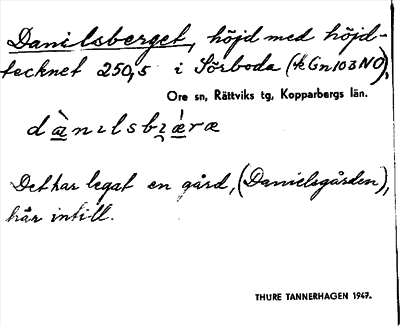 Danilsberget, höjd med höjd-
tecknet 250,5 i Sörboda (4k Gn103NO),
Ore sn, Rättviks tg, Kopparbergs län.
dànılsbı̯ǽræ
Det har legat en gård, (Danielsgården),
här intill.
THURE TANNERHAGEN 1947.